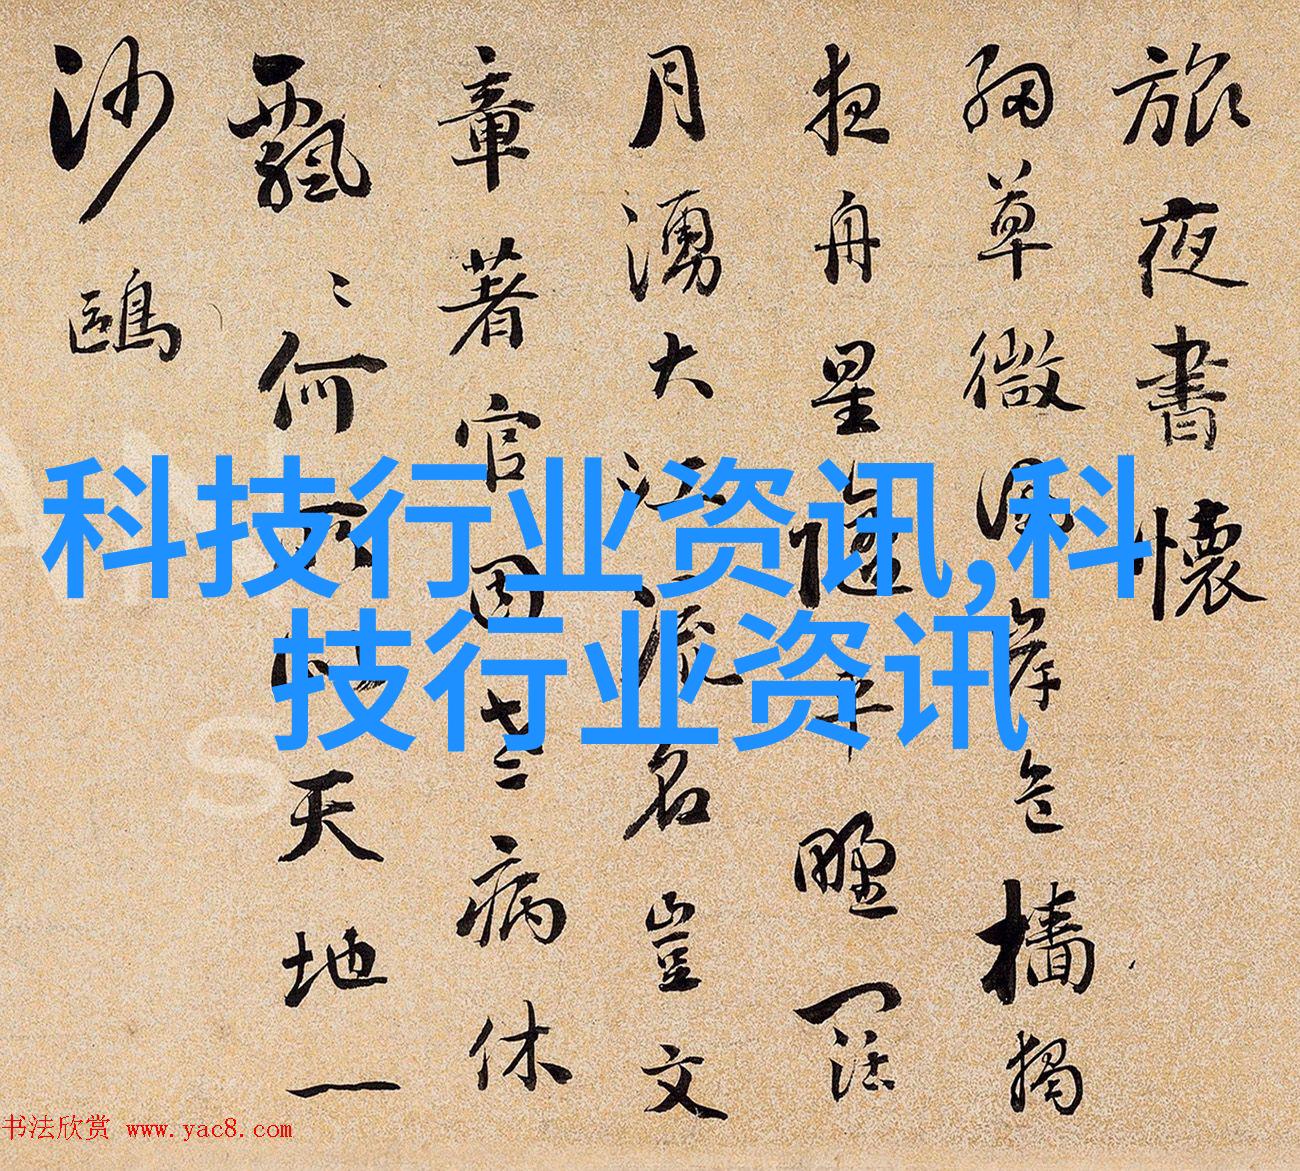 旅夜書懷
細草微風岸危檣獨
夜舟星隨平野闊
月湧大江流名豈文
章著官因老病休
飄〻何所似天地一
沙鷗
科技行业资讯,科
技行业资讯
书法欣赏 www.yac8.com